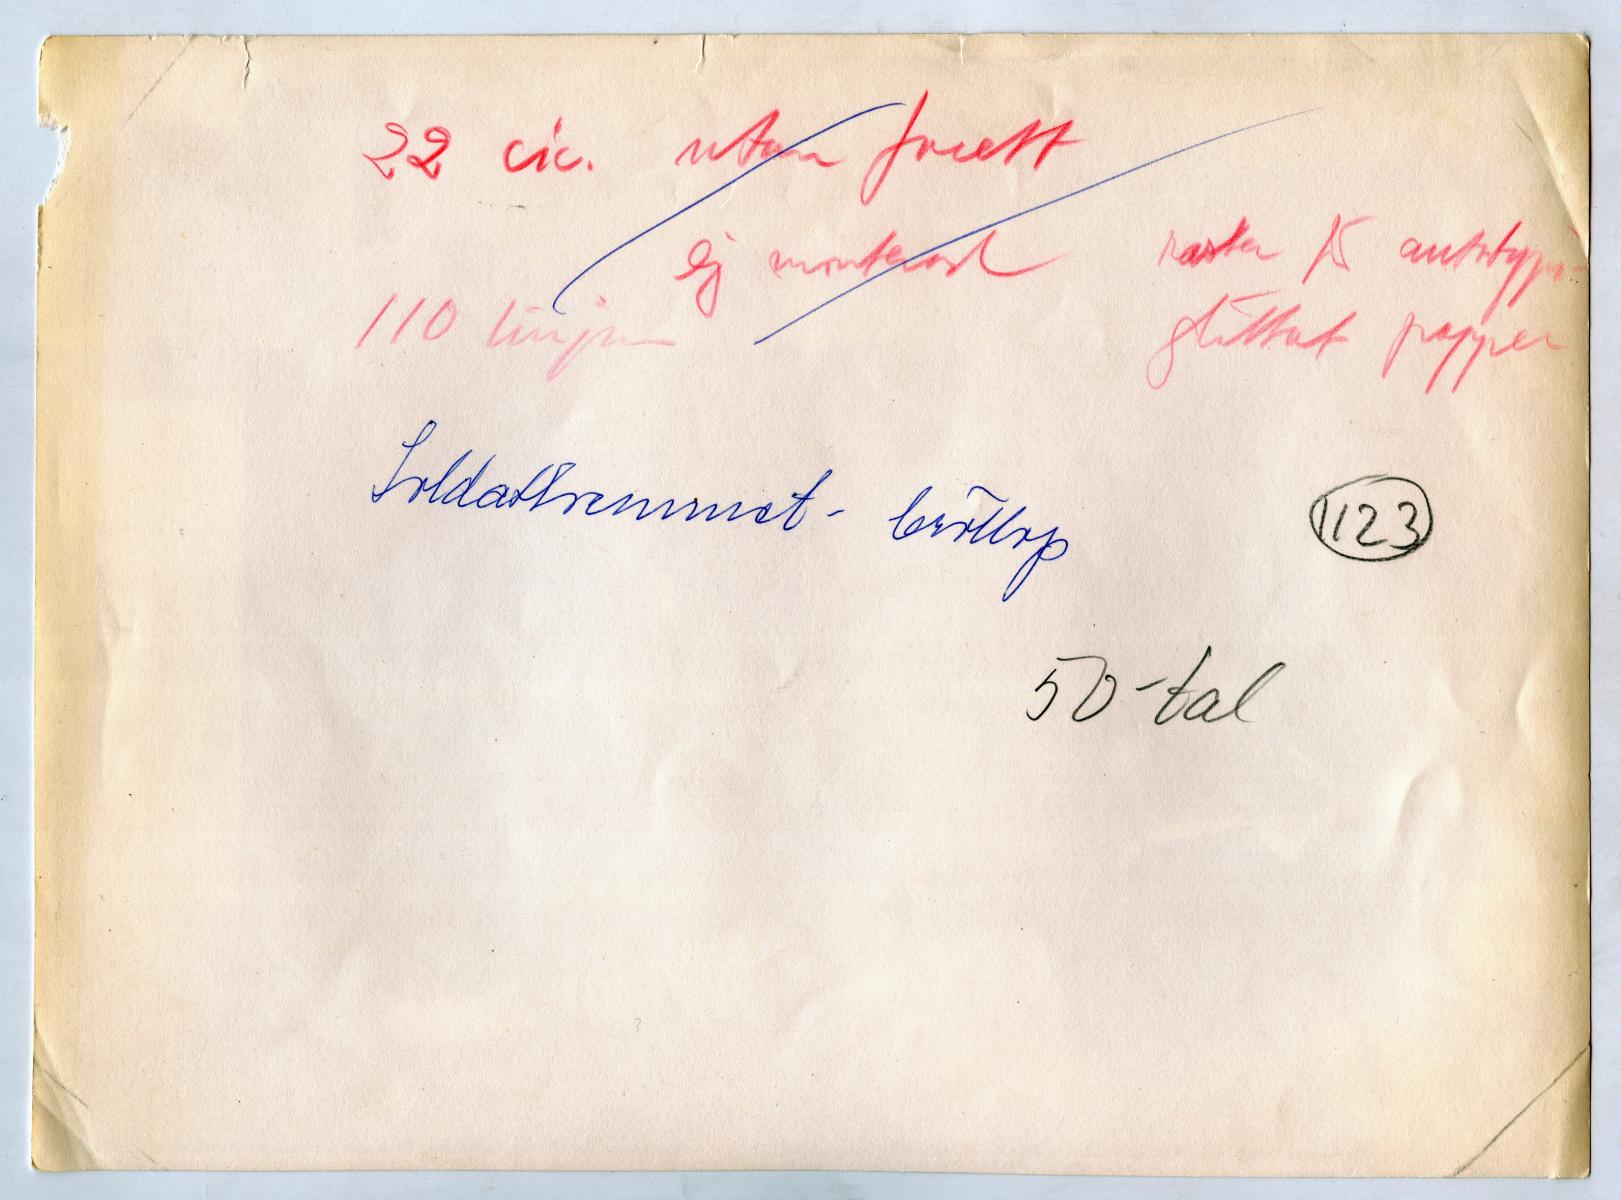 22 cic. utan facett
ej monterad
raster 75 autotypi-
110 linjer
glättat papper
Soldathemmet - bröllop
1123
50-tal